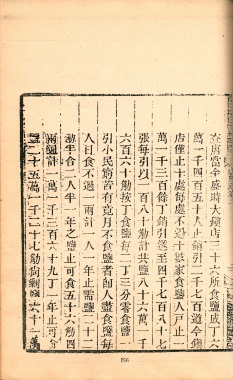 查唐當全盛時大鎮店二十六所食鹽成丁六
萬一千四百五十八人銷引二千七百道今鎮
店僅止十處每處不過十數家食鹽人戶止一
萬一千三百餘丁銷引遞至四千七百八十七
張每引以一百八十觔計共鹽八十六萬一千
六百六十觔按丁食鹽二丁三分零食鹽每
引小民齋皆有竟月不食鹽者即人盡食鹽每
人日食不過一兩計一人一年止需鹽二十二
觔半合二人半一年之鹽止可食五十六觔四
兩總計一萬一千三百六十九丁一年止可食
鹽二十五萬一千三十七觔尚剩鹽六十一萬